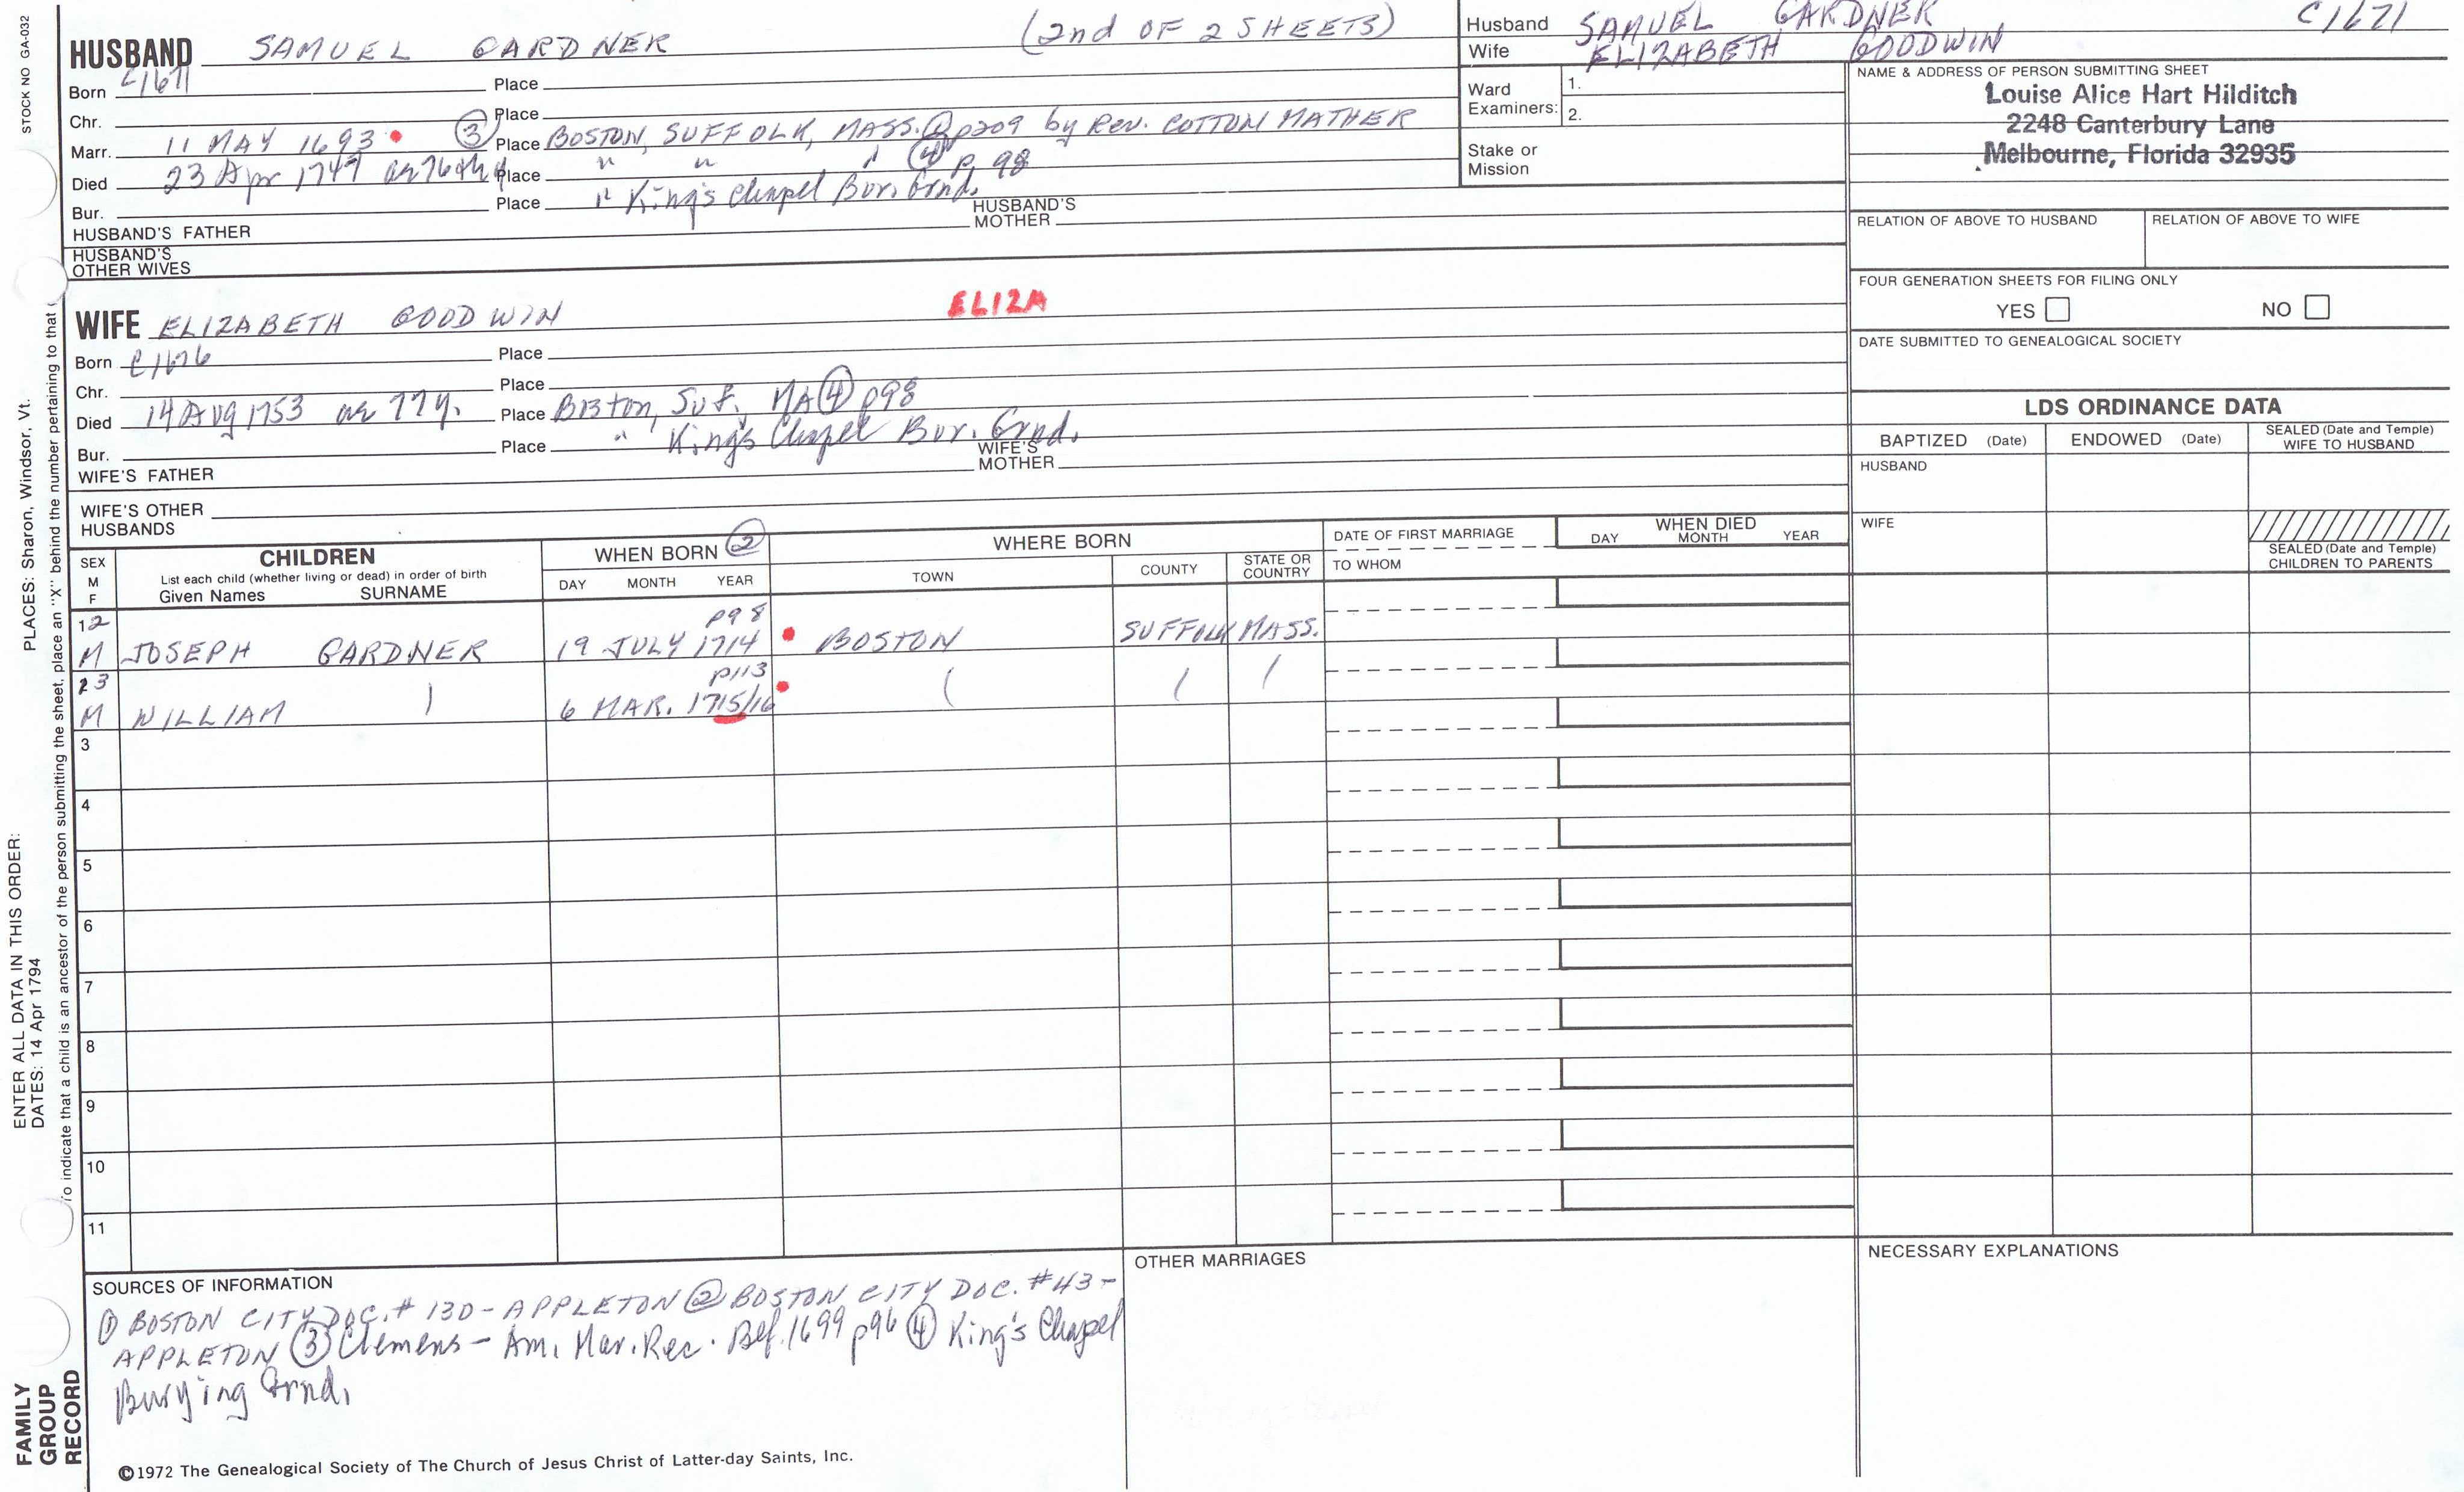 STOCK NO GA-032
HUSBAND SAMUEL GARDNER (2nd OF 2 SHEETS)
Born c1671 Place
Chr. Place
Marr. 11 MAY 1693 ③ Place BOSTON, SUFFOLK, MASS. p209 by Rev. COTTON MATHER
Died 23 Apr 1747 Place " " " ④ p. 98
Bur. Place " King's Chapel Bur. Grnd.
HUSBAND'S FATHER HUSBAND'S MOTHER
HUSBAND'S OTHER WIVES
Husband SAMUEL GARDNER C1671
Wife ELIZABETH GOODWIN
Ward Examiners: 1.
2.
Stake or Mission
NAME & ADDRESS OF PERSON SUBMITTING SHEET
Louise Alice Hart Hilditch
2248 Canterbury Lane
Melbourne, Florida 32935
RELATION OF ABOVE TO HUSBAND RELATION OF ABOVE TO WIFE
FOUR GENERATION SHEETS FOR FILING ONLY
YES NO
DATE SUBMITTED TO GENEALOGICAL SOCIETY
ELIZA
WIFE ELIZABETH GOODWIN
Born c1676 Place
Chr. Place
Died 14 Aug 1753 ae 77y. Place Boston, Suf., MA ④ p98
Bur. Place " King's Chapel Bur. Grnd.
WIFE'S FATHER WIFE'S MOTHER
WIFE'S OTHER HUSBANDS
LDS ORDINANCE DATA
BAPTIZED (Date) ENDOWED (Date) SEALED (Date and Temple) WIFE TO HUSBAND
HUSBAND
WIFE
SEALED (Date and Temple) CHILDREN TO PARENTS
SEX M F
CHILDREN
List each child (whether living or dead) in order of birth
Given Names SURNAME
WHEN BORN ②
DAY MONTH YEAR
WHERE BORN
TOWN COUNTY STATE OR COUNTRY
DATE OF FIRST MARRIAGE
TO WHOM
WHEN DIED
DAY MONTH YEAR
12 p98
M JOSEPH GARDNER 19 JULY 1714 BOSTON SUFFOLK MASS.
13 p113
M WILLIAM 6 MAR. 1715/16
3
4
5
6
7
8
9
10
11
SOURCES OF INFORMATION
① BOSTON CITY DOC. # 130 - APPLETON ② BOSTON CITY DOC. #43 -
APPLETON ③ Clemens - Am. Mar. Rec. Bef. 1699 p96 ④ King's Chapel
Burying Grnd.
OTHER MARRIAGES
NECESSARY EXPLANATIONS
©1972 The Genealogical Society of The Church of Jesus Christ of Latter-day Saints, Inc.
ENTER ALL DATA IN THIS ORDER:
DATES: 14 Apr 1794 PLACES: Sharon, Windsor, Vt.
To indicate that a child is an ancestor of the person submitting the sheet, place an "X" behind the number pertaining to that
FAMILY
GROUP
RECORD